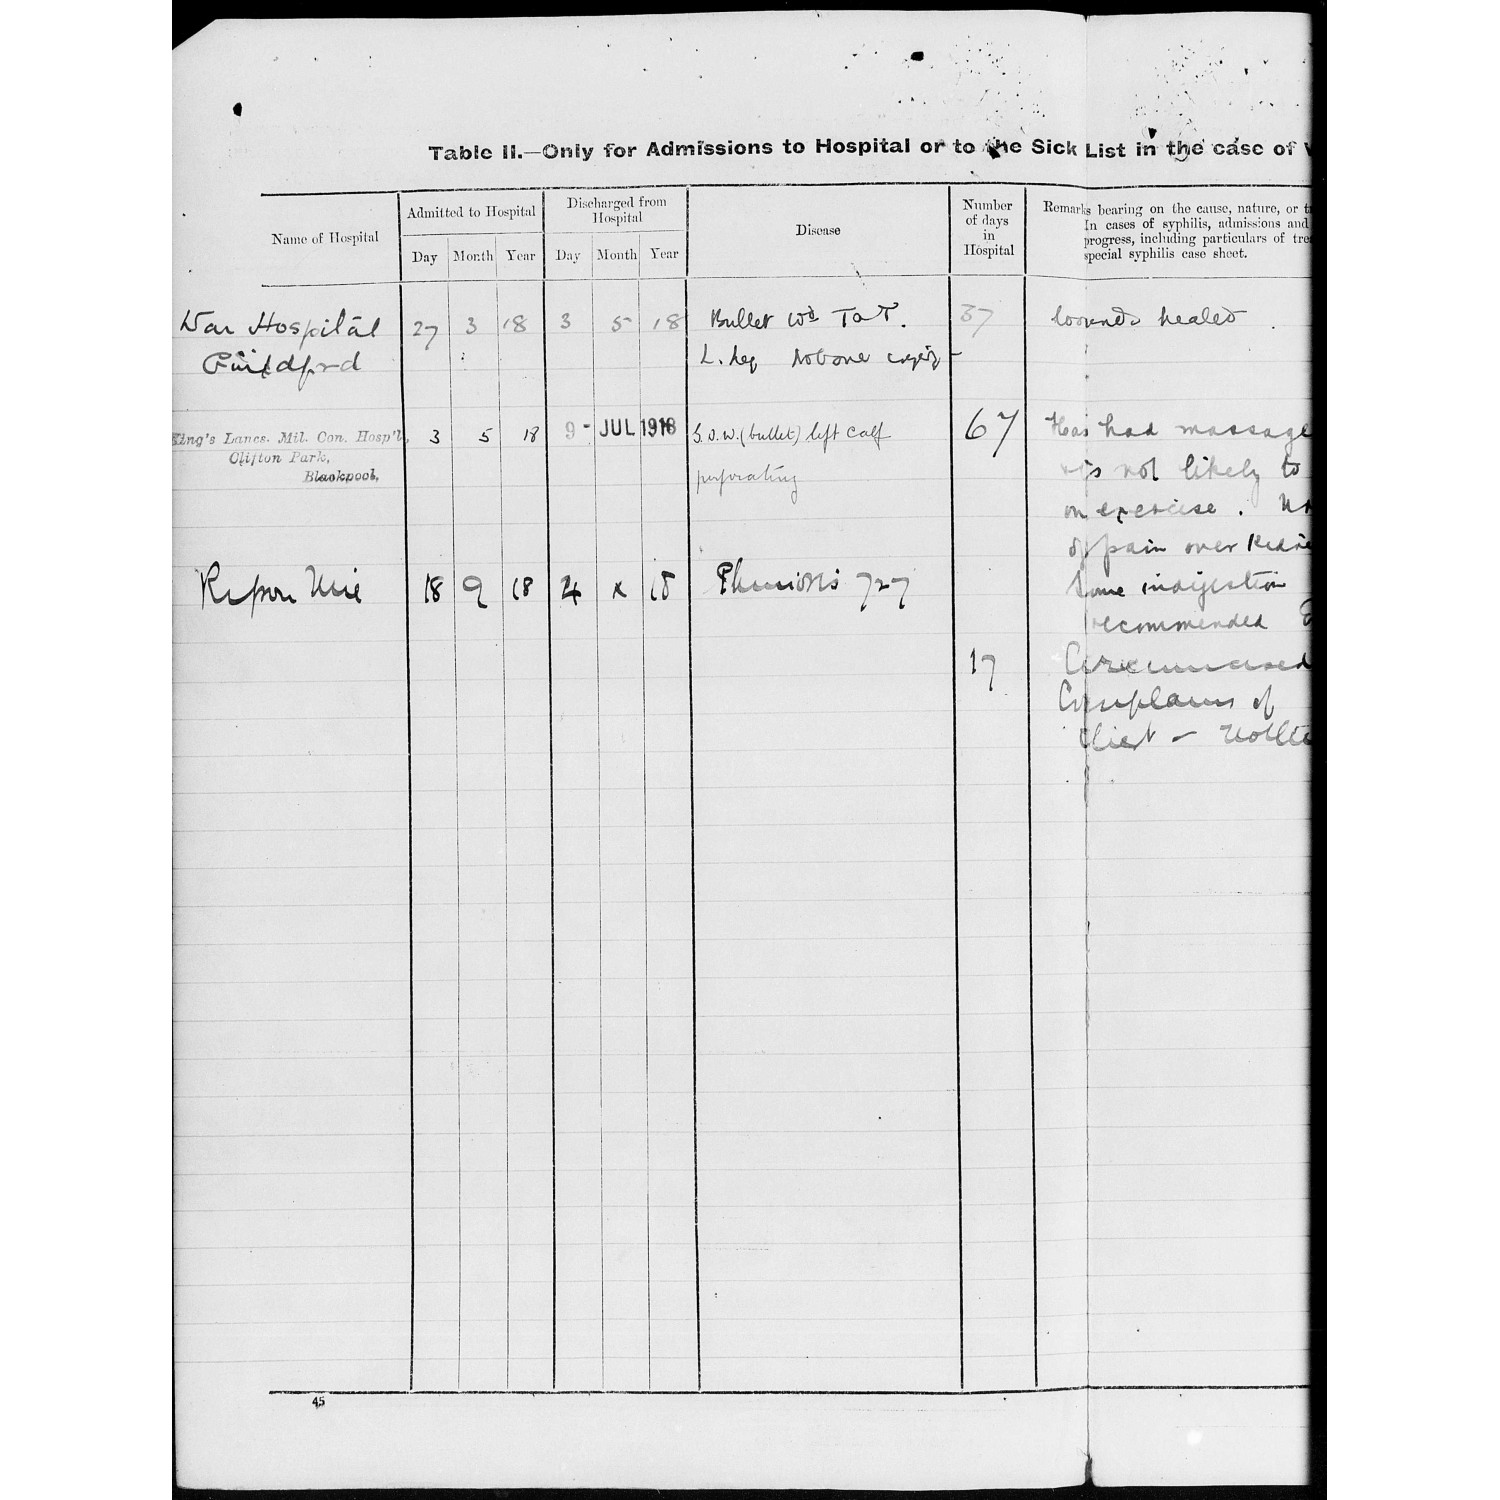 Table II.—Only for Admissions to Hospital or to the Sick List in the case of
Name of Hospital
Admitted to Hospital
Discharged from Hospital
Disease
Number of days in Hospital
Remarks bearing on the cause, nature, or
In cases of syphilis, admissions and
progress, including particulars of
special syphilis case sheet.
Day Month Year Day Month Year
War Hospital 27 3 18 3 5 18 Bullet Wd T a T. 37 wounds healed
Guildford L. Leg No bone
King's Lancs. Mil. Con. Hosp'l, 3 5 18 9 - JUL 1918 G.S.W. (bullet) left calf 67 Has had massage
Clifton Park,
Blackpool,
perforating
is not likely to
on exercise.
of pain over
Some indigestion
recommended
Ripon 18 9 18 4 x 18 Phimosis 727
17 Circumcised
Complains of
chest -
45